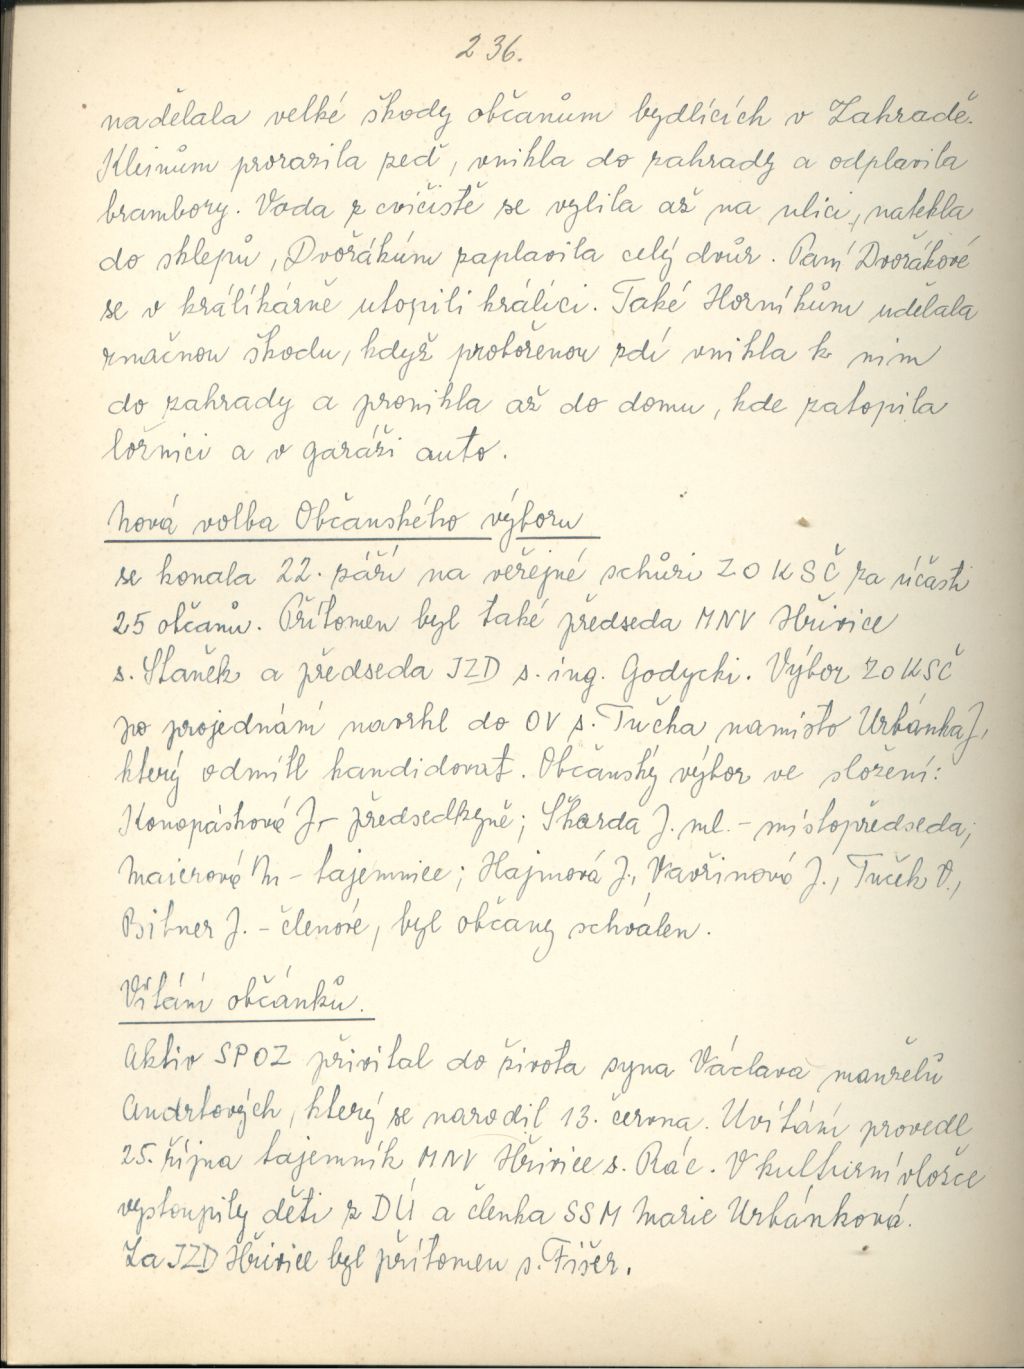 236.
nadělala velké škody občanům bydlících v Zahradě.
Kleinům prorazila zeď, vnikla do zahrady a odplavila
brambory. Voda z cvičiště se vylila až na ulici, natekla
do sklepů, Dvořákům zaplavila celý dvůr. Paní Dvořákové
se v králíkárně utopili králíci. Také Horníkům udělala
značnou škodu, když protořenou zdí vnikla k nim
do zahrady a pronikla až do domu, kde zatopila
ložnici a v garáži auto.
Nová volba Občanského výboru
se konala 22. září na veřejné schůzi ZO KSČ za účasti
25 občanů. Přítomen byl také předseda MNV Hřivice
s. Staněk a předseda JZD s. ing. Godycki. Výbor ZO KSČ
po projednání navrhl do OV s. Tučka namísto Urbánka J,
který odmítl kandidovat. Občanský výbor ve složení:
Konopásková J.- předsedkyně; Škarda J. ml. - místopředseda;
Maierová M - tajemnice; Hajnová J., Vavřinová J., Tuček V.,
Bitner J. - členové, byl občany schválen.
Vítání občánků.
Aktiv SPOZ přivítal do života syna Václava manželů
Andrtových, který se narodil 13. června. Uvítání provedl
25. října tajemník MNV Hřivice s. Rác. V kulturní vložce
vystoupily děti z DÚ a členka SSM Marie Urbánková.
Za JZD Hřivice byl přítomen s. Fišer.